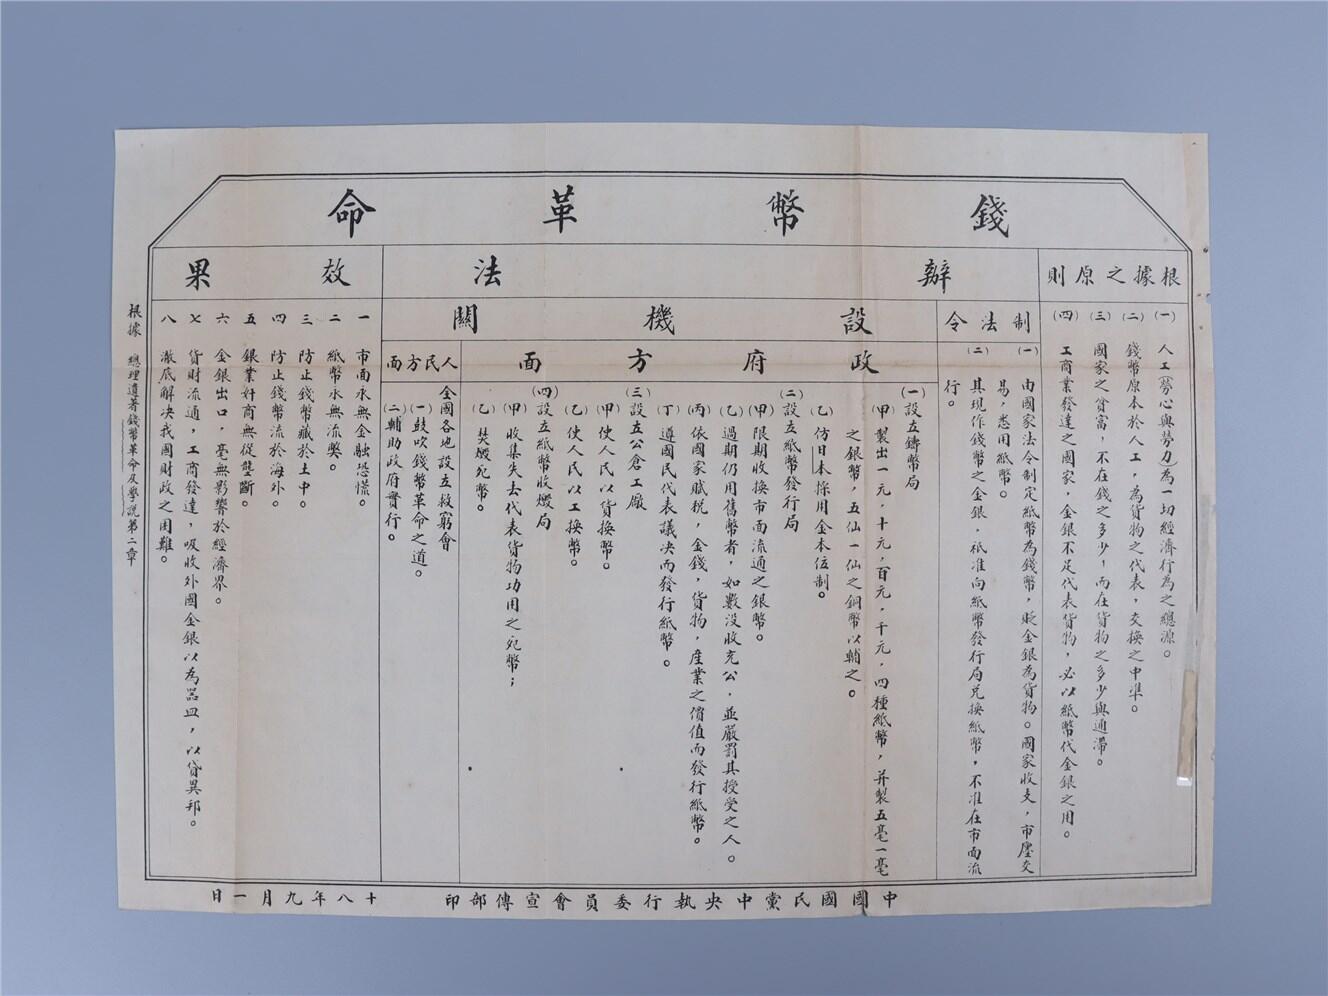 錢幣革命
根據之原則
(一)人工(勞心與勞力)為一切經濟行為之總源。
(二)錢幣原本於人工，為貨物之代表，交換之中準。
(三)國家之貧富，不在錢之多少，而在貨物之多少與通滯。
(四)工商業發達之國家，金銀不足代表貨物，必以紙幣代金銀之用。
辦法
制法令
(一)由國家法令制定紙幣為錢幣，貶金銀為貨物。國家收支，市廛交
易，悉用紙幣。
(二)其現作錢幣之金銀，祇准向紙幣發行局兌換紙幣，不准在市面流
行。
設機關
政府方面
(一)設立鑄幣局
(甲)製出一元，十元，百元，千元，四種紙幣，并製五毫一毫
之銀幣，五仙一仙之銅幣以輔之。
(乙)仿日本採用金本位制。
(二)設立紙幣發行局
(甲)限期收換市面流通之銀幣。
(乙)過期仍用舊幣者，如數沒收充公，並嚴罰其授受之人。
(丙)依國家賦稅，金錢，貨物，產業之價值而發行紙幣。
(丁)遵國民代表議決而發行紙幣。
(三)設立公倉工廠
(甲)使人民以貨換幣。
(乙)使人民以工換幣。
(四)設立紙幣收燬局
(甲)收集失去代表貨物功用之死幣；
(乙)焚燬死幣。
人民方面
全國各地設立救窮會
(一)鼓吹錢幣革命之道。
(二)輔助政府實行。
效果
一 市面永無金融恐慌。
二 紙幣永無流弊。
三 防止錢幣藏於土中。
四 防止錢幣流於海外。
五 銀業奸商無從壟斷。
六 金銀出口，毫無影響於經濟界。
七 貨財流通，工商發達，吸收外國金銀以為器皿，以貸異邦。
八 澈底解決我國財政之困難。
根據 總理遺著錢幣革命及學說第二章
中國國民黨中央執行委員會宣傳部印
十八年九月一日